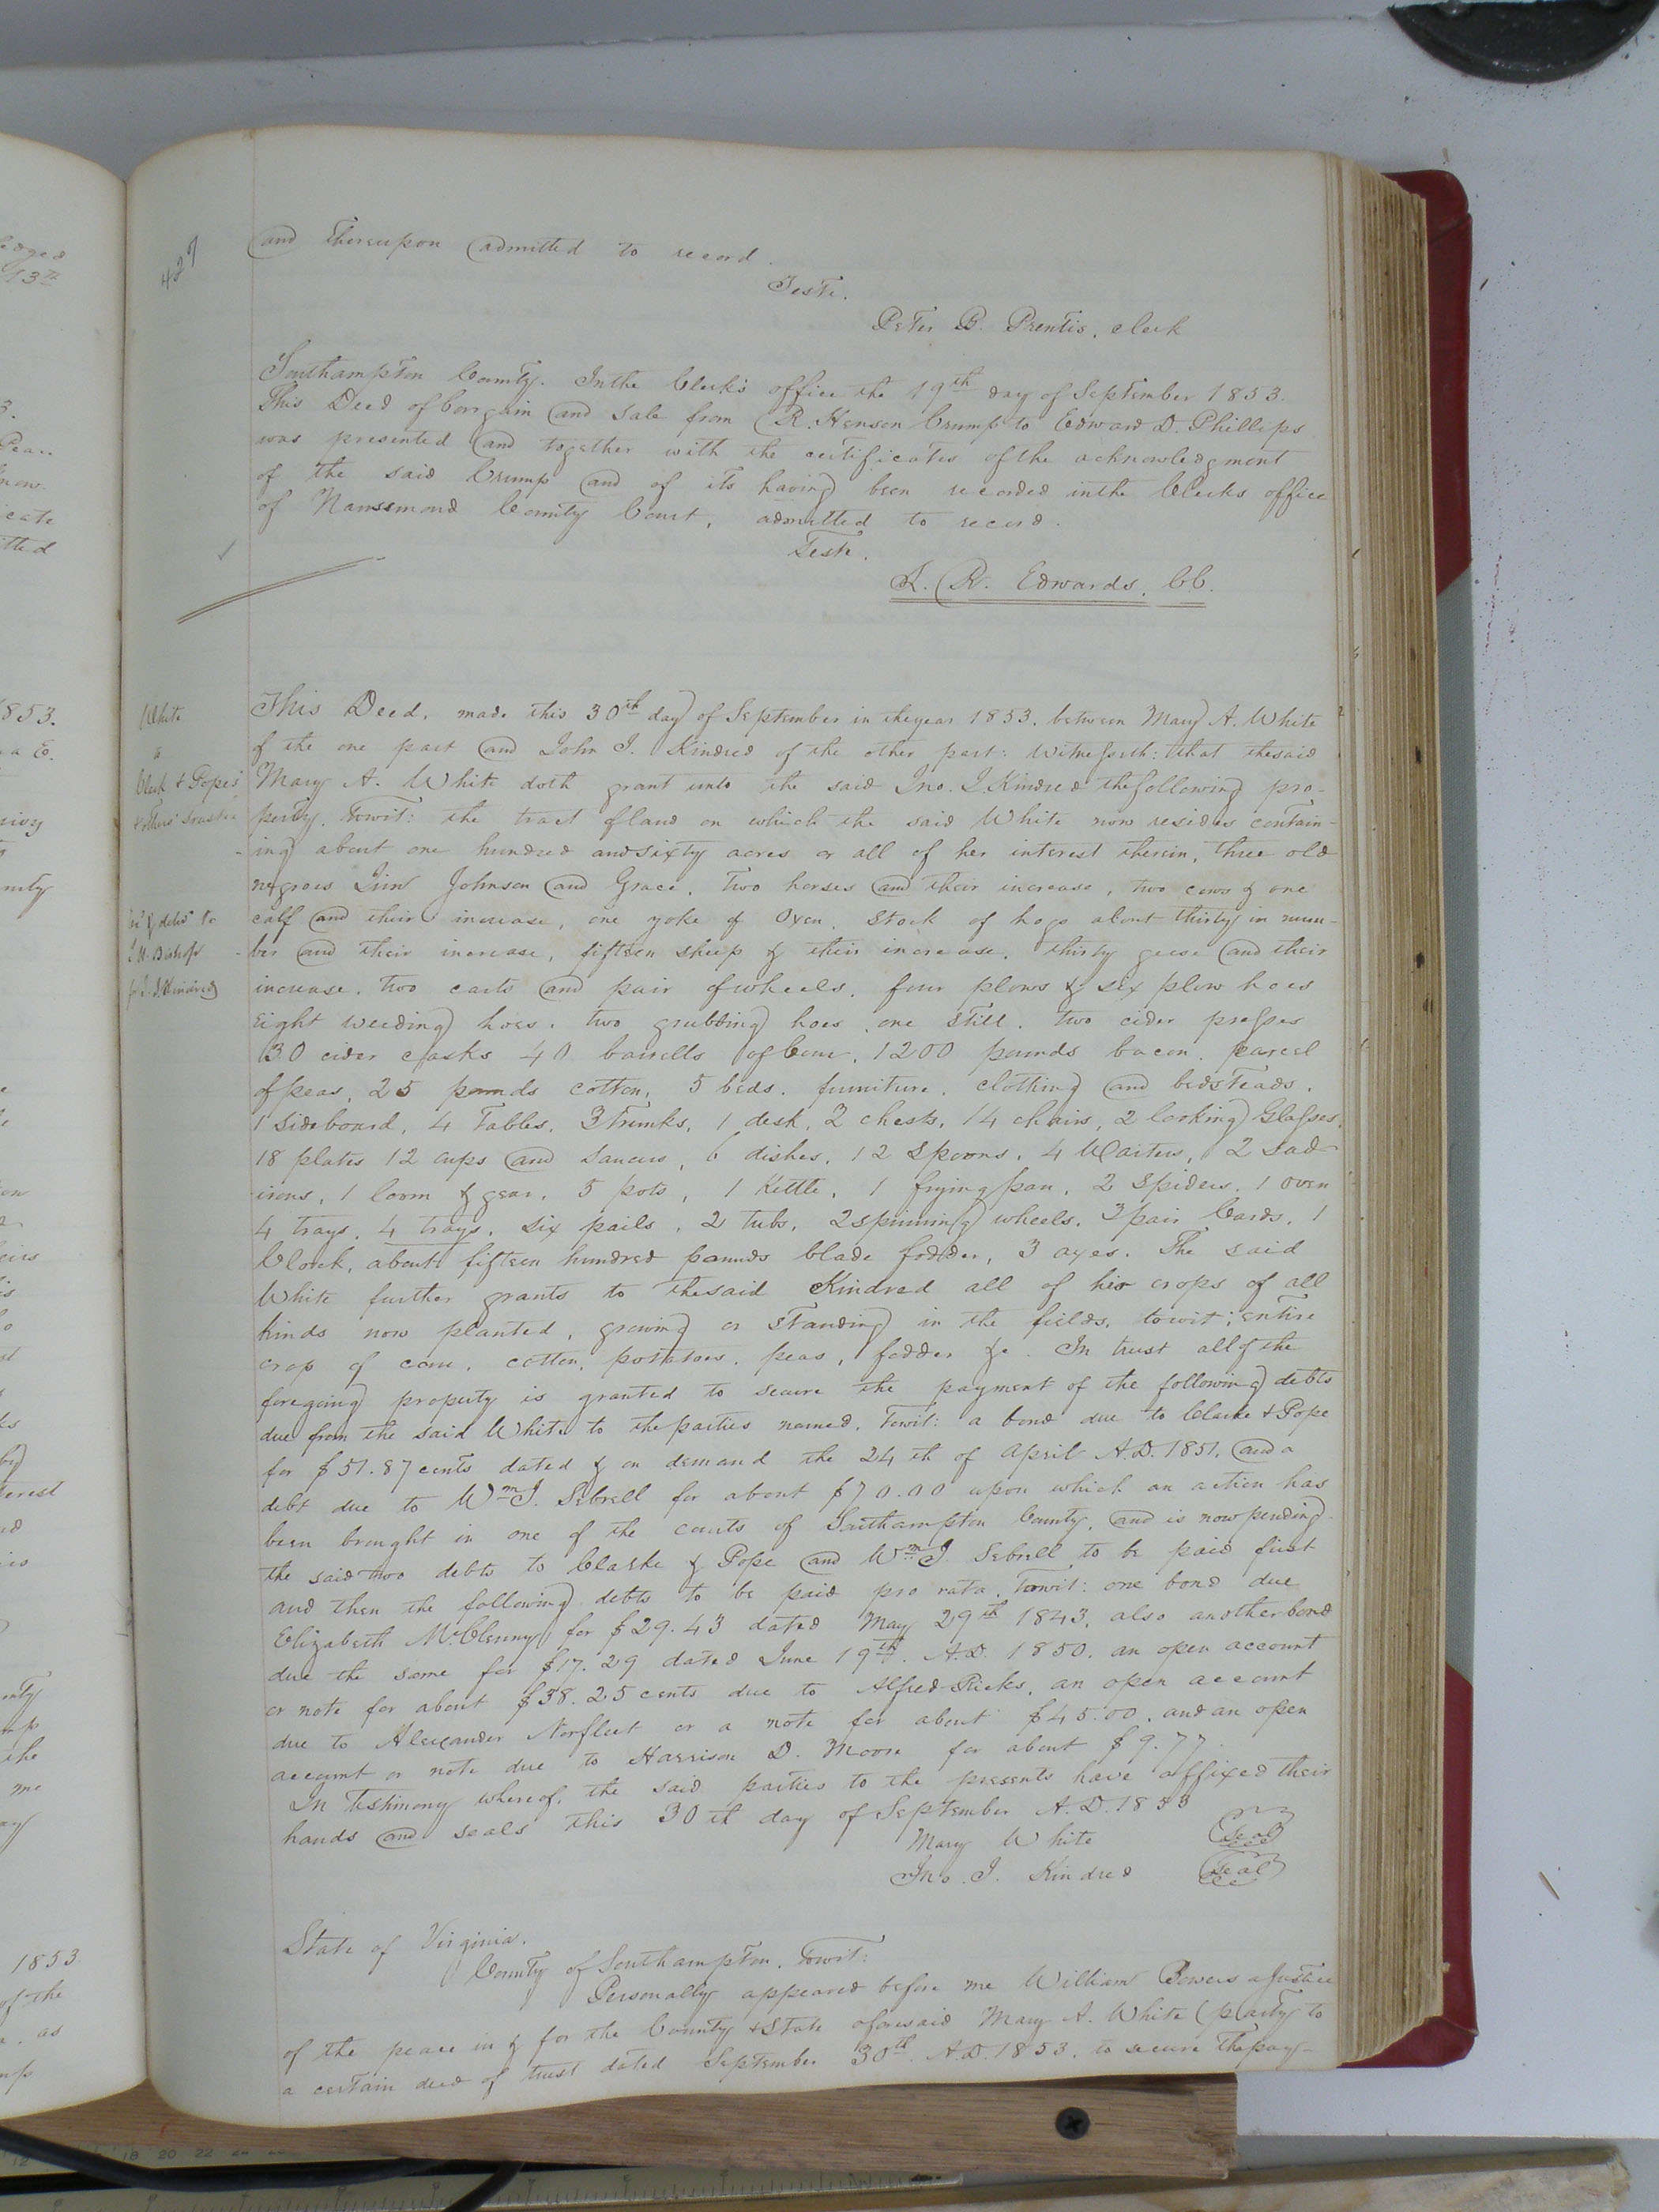 427
and thereupon admitted to record.
Teste.
Peter B. Prentis, clerk
Southampton County. In the Clerk's office the 19th day of September 1853.
This Deed of bargain and sale from R. Henson Crump to Edward D. Phillips
was presented and together with the certificates of the acknowledgment
of the said Crump and of its having been recorded in the Clerks office
of Nansemond County Court, admitted to record.
Teste.
L. R. Edwards, CC.
White
to
Clark & Popes
& others' Trustee
This Deed, made this 30th day of September in the year 1853. between Mary A. White
of the one part and John J. Kindred of the other part: Witnesseth: that the said
Mary A. White doth grant unto the said Jno. J Kindred the following pro-
perty. Towit: the tract of land on which the said White now resides contain-
ing about one hundred and sixty acres or all of her interest therein, three old
negroes Jim Johnson and Grace. Two horses and their increase, two cows & one
calf and their increase, one yoke of Oxen. Stock of hogs about thirty in num-
ber and their increase, fifteen sheep & their increase. thirty geese and their
increase. two carts and pair of wheels. four plows & six plow hoes
Eight weeding hoes. two grubbing hoes. one Still. two cider presses
30 cider casks 40 barrells of Corn. 1200 pounds bacon. parcel
of peas, 25 pounds cotton, 5 beds. furniture. clothing and bedsteads.
1 sideboard, 4 Tables, 3 Trunks, 1 desk, 2 chests, 14 chairs, 2 looking Glasses,
18 plates 12 cups and saucers, 6 dishes, 12 Spoons. 4 Waiters, 2 sad-
irons, 1 loom & gear, 5 pots, 1 Kettle, 1 frying pan, 2 Spiders. 1 oven
4 trays. 4 trays, six pails. 2 tubs, 2 spinning wheels. 3 pair Cards. 1
Clock, about fifteen hundred pounds blade fodder, 3 axes. The said
White further grants to the said Kindred all of his crops of all
kinds now planted, growing or standing in the fields, towit; entire
crop of corn, cotton, potatoes. peas, fodder &c. In trust all of the
foregoing property is granted to secure the payment of the following debts
due from the said White to the parties named. Towit: a bond due to Clarke & Pope
for $51.87 cents dated & on demand the 24th of April A.D. 1851, and a
debt due to Wm J. Sebrell for about $70.00 upon which an action has
been brought in one of the courts of Southampton County, and is now pending.
the said two debts to Clarke & Pope and Wm J. Sebrell to be paid first
and then the following debts to be paid pro rata. Towit: one bond due
Elizabeth McClenny for $29.43 dated May 29th 1843. also another bond
due the same for $17.29 dated June 19th. A.D. 1850. an open account
or note for about $38.25 cents due to Alfred Ricks, an open account
due to Alexander Norfleet or a note for about $45.00. and an open
account or note due to Harrison D. Moore for about $9.77.
In testimony whereof, the said parties to the presents have affixed their
hands and seals this 30th day of September A.D. 1853
Mary White Seal
Jno. J. Kindred Seal
State of Virginia.
County of Southampton. Towit:
Personally appeared before me William Bowers a Justice
of the peace in & for the County & State aforesaid Mary A. White (party to
a certain deed of trust dated September 30th. A.D. 1853. to secure the pay-